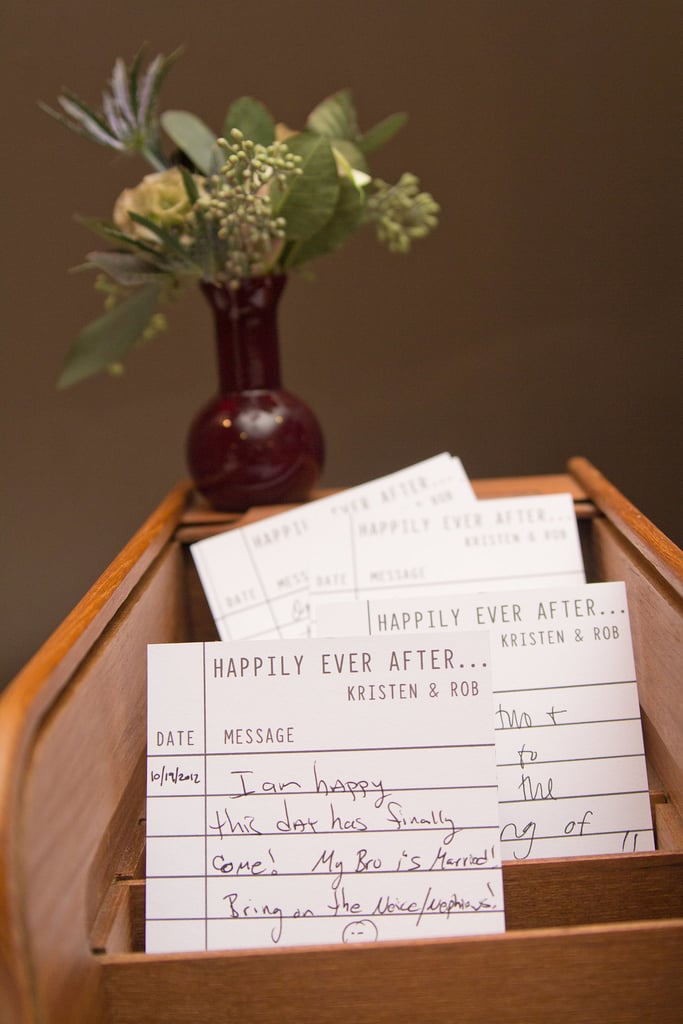 HAPPILY EVER AFTER...
KRISTEN & ROB
DATE MESSAGE
10/19/2012 I am hAppy
this dAy has finally
come! My Bro is Married!
Bring on the Neice/Nephews!
HAPPILY EVER AFTER...
KRISTEN & ROB
to
the
ng of !!
HAPPILY EVER AFTER...
KRISTEN & ROB
DATE MESSAGE
HAPPI VER AFTER...
& ROB
DATE MESS